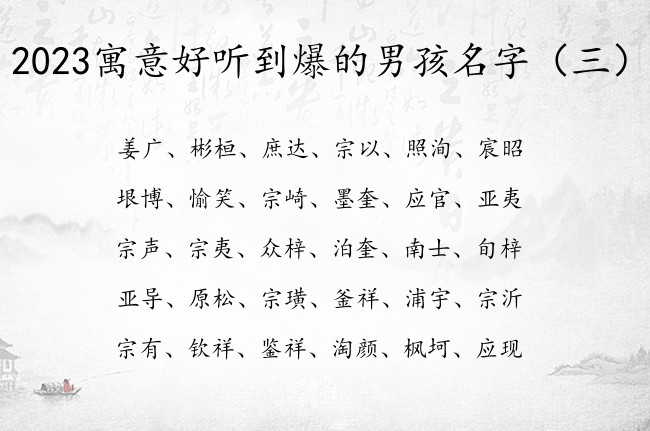 2023寓意好听到爆的男孩名字（三）
姜广、彬桓、庶达、宗以、照洵、宸昭
垠博、愉笑、宗崎、墨奎、应官、亚夷
宗声、宗夷、众梓、泊奎、南士、旬梓
亚导、原松、宗璜、釜祥、浦宇、宗沂
宗有、钦祥、鉴祥、淘颜、枫坷、应现